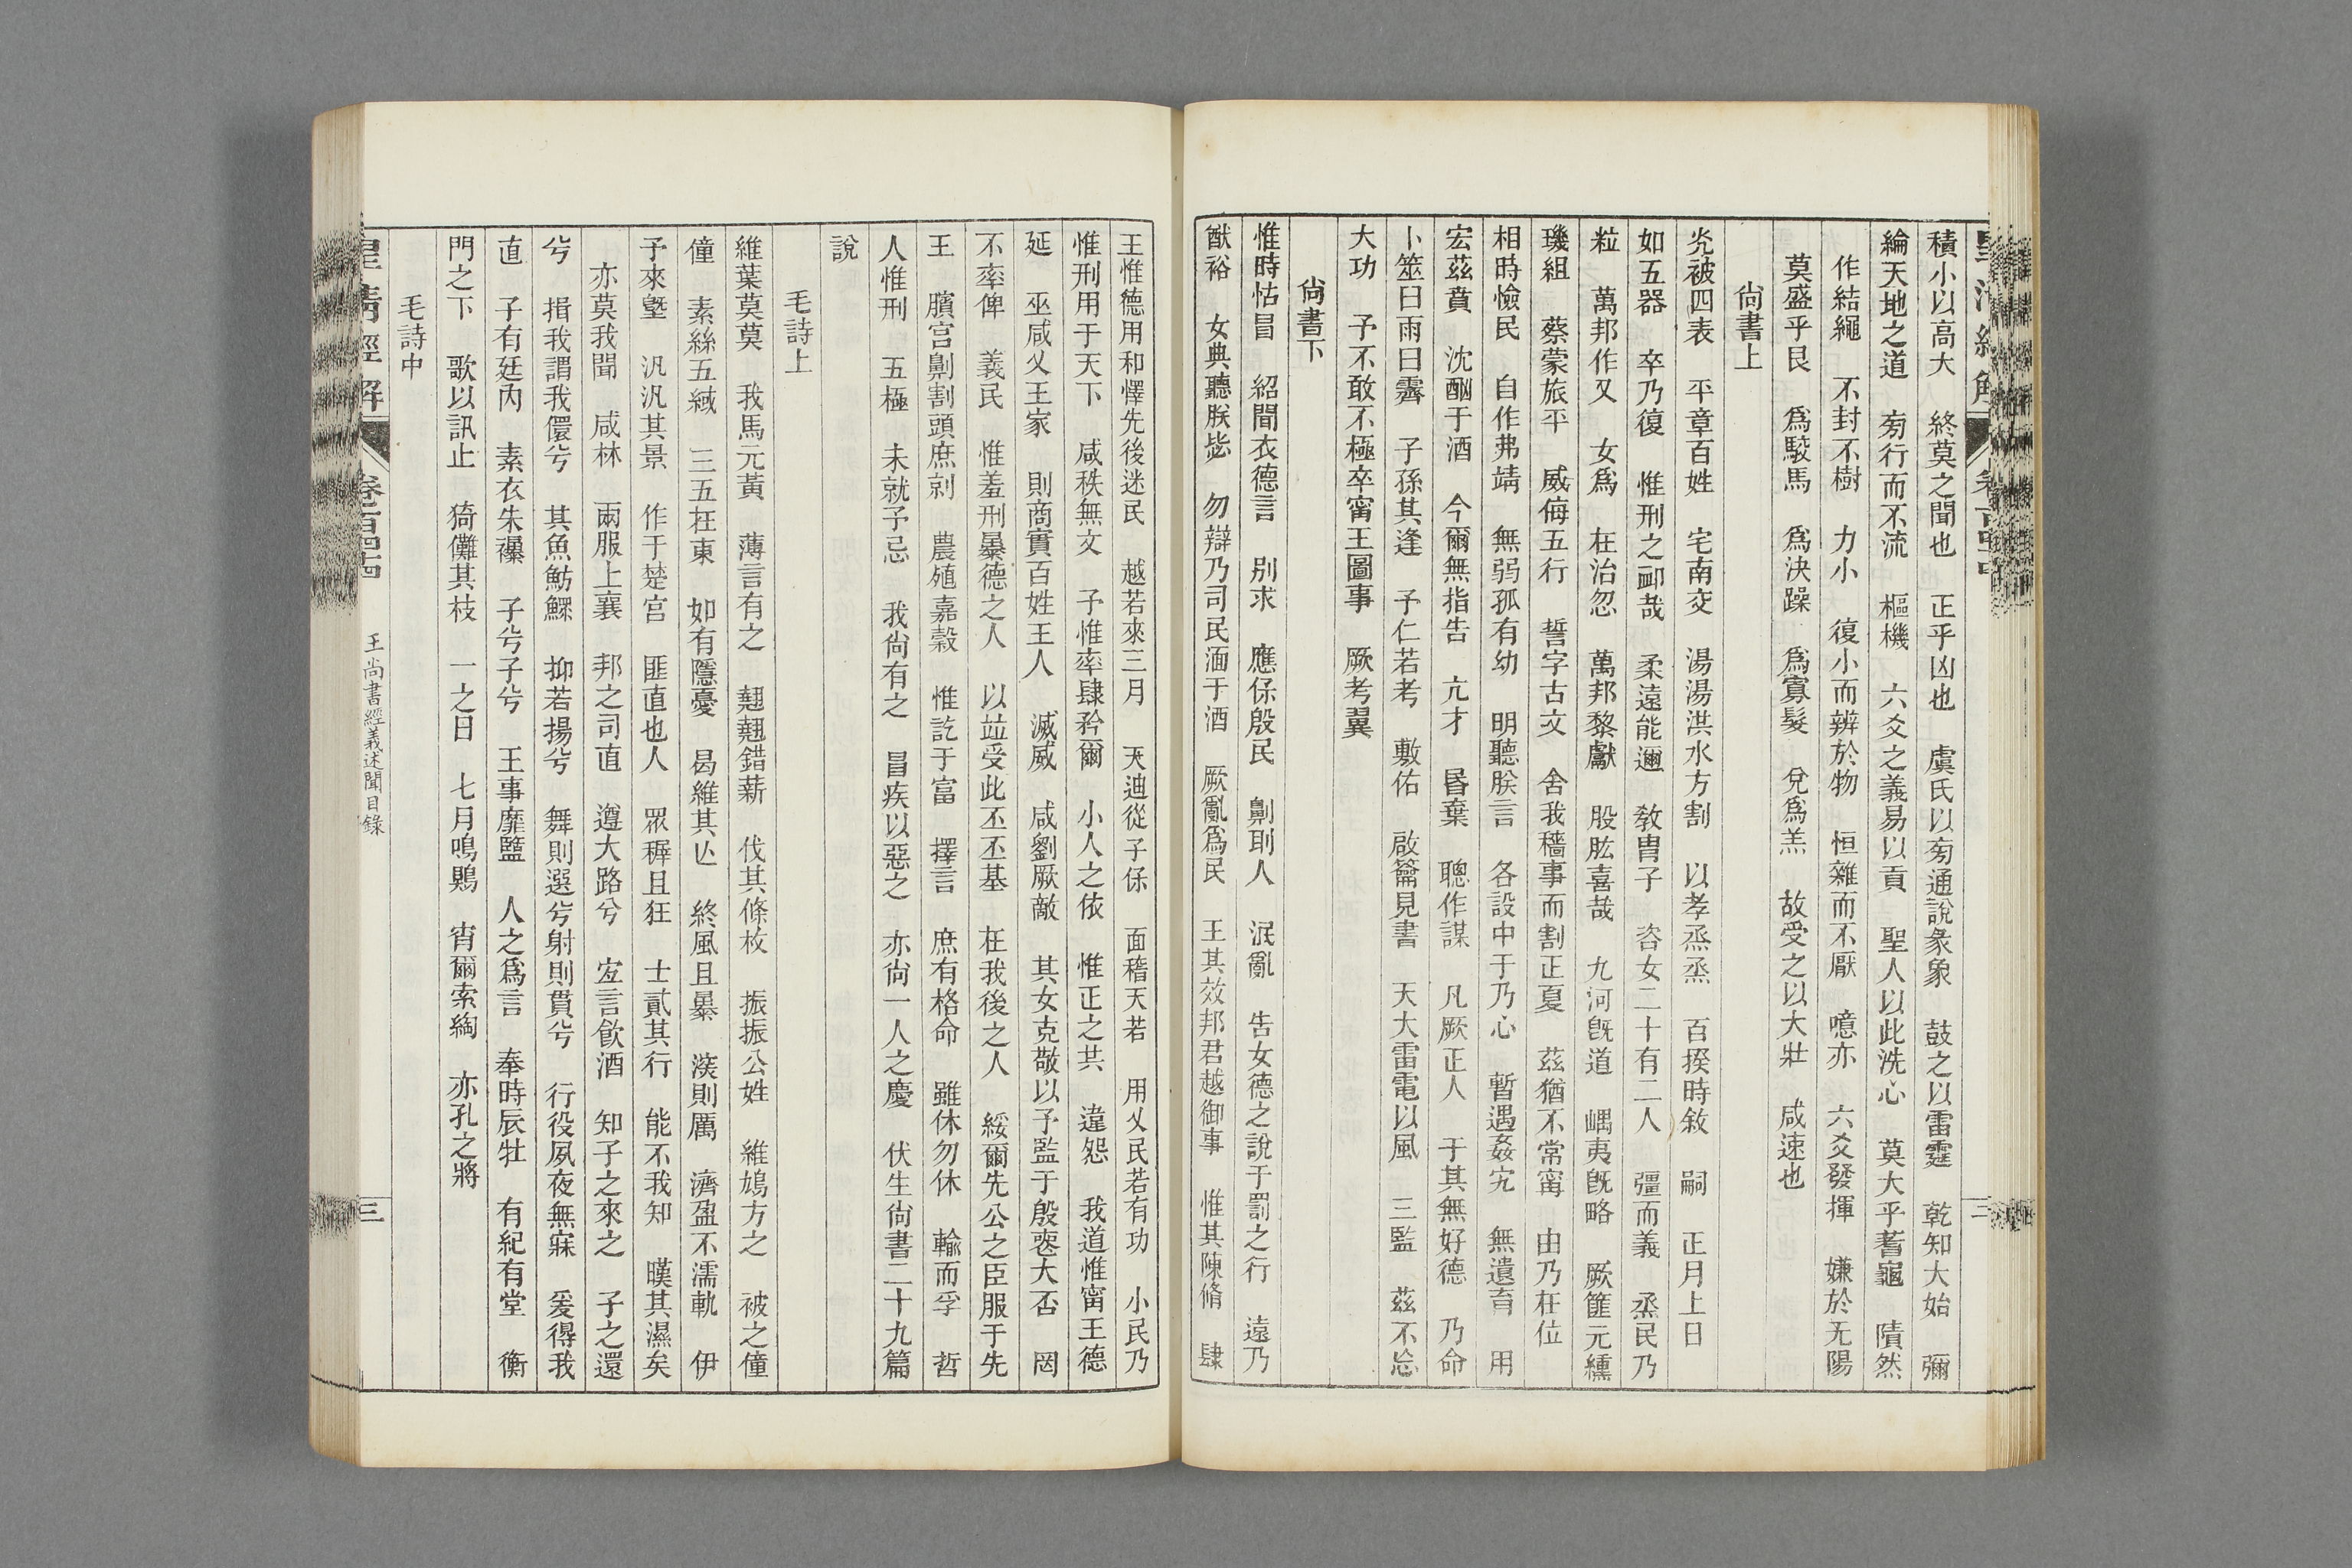 積小以高大　終莫之聞也　正乎凶也　虞氏以㫄通說彖象　鼓之以雷霆　乾知大始　彌
綸天地之道　㫄行而不流　樞機　六爻之義易以貢　聖人以此洗心　莫大乎蓍龜　隤然
作結繩　不封不樹　力小　復小而辨於物　恒雜而不厭　噫亦　六爻發揮　嫌於无陽
莫盛乎艮　爲駿馬　爲決躁　爲寡髮　兌爲羔　故受之以大壯　咸速也
尙書上
光被四表　平章百姓　宅南交　湯湯洪水方割　以孝烝烝　百揆時敘　嗣　正月上日
如五器　卒乃復　惟刑之卹哉　柔遠能邇　敎胄子　咨女二十有二人　彊而義　烝民乃
粒　萬邦作乂　女爲　在治忽　萬邦黎獻　股肱喜哉　九河旣道　嵎夷旣略　厥篚元纁
璣組　蔡蒙旅平　威侮五行　誓字古文　舍我穡事而割正夏　茲猶不常甯　由乃在位
相時憸民　自作弗靖　無弱孤有幼　明聽朕言　各設中于乃心　暫遇姦宄　無遺育　用
宏茲賁　沈酗于酒　今爾無指告　亢才　昬棄　聰作謀　凡厥正人　于其無好德　乃命
卜筮曰雨曰霽　子孫其逢　予仁若考　敷佑　啟籥見書　天大雷電以風　三監　茲不忘
大功　予不敢不極卒甯王圖事　厥考翼
尙書下
惟時怙冒　紹聞衣德言　別求　應保殷民　劓刵人　泯亂　告女德之說于罰之行　遠乃
猷裕　女典聽朕毖　勿辯乃司民湎于酒　厥亂爲民　王其效邦君越御事　惟其陳脩　肆
王惟德用和懌先後迷民　越若來三月　天迪從子保　面稽天若　用乂民若有功　小民乃
惟刑用于天下　咸秩無文　予惟率肆矜爾　小人之依　惟正之共　違怨　我道惟甯王德
延　巫咸乂王家　則商實百姓王人　滅威　咸劉厥敵　其女克敬以予監于殷喪大否　罔
不率俾　義民　惟羞刑暴德之人　以竝受此丕丕基　在我後之人　綏爾先公之臣服于先
王　臏宮劓割頭庶剠　農殖嘉穀　惟訖于富　擇言　庶有格命　雖休勿休　輸而孚　哲
人惟刑　五極　未就予忌　我尙有之　冒疾以惡之　亦尙一人之慶　伏生尙書二十九篇
說
毛詩上
維葉莫莫　我馬元黃　薄言有之　翹翹錯薪　伐其條枚　振振公姓　維鳩方之　被之僮
僮　素絲五緎　三五在東　如有隱憂　曷維其亡　終風且暴　深則厲　濟盈不濡軌　伊
予來塈　汎汎其景　作于楚宮　匪直也人　眾穉且狂　士貳其行　能不我知　暵其濕矣
亦莫我聞　咸林　兩服上襄　邦之司直　遵大路兮　宜言飮酒　知子之來之　子之還
兮　揖我謂我儇兮　其魚魴鰥　抑若揚兮　舞則選兮射則貫兮　行役夙夜無寐　爰得我
直　子有廷內　素衣朱襮　子兮子兮　王事靡盬　人之爲言　奉時辰牡　有紀有堂　衡
門之下　歌以訊止　猗儺其枝　一之日　七月鳴鵙　宵爾索綯　亦孔之將
毛詩中
皇清經解　卷一千一百四十四　王尙書經義述聞目錄　三